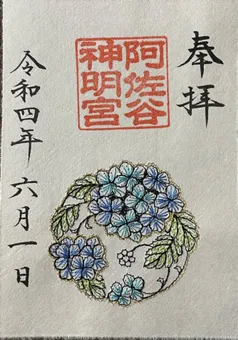 奉拝
阿佐谷
神明宮
令和四年 六月一日